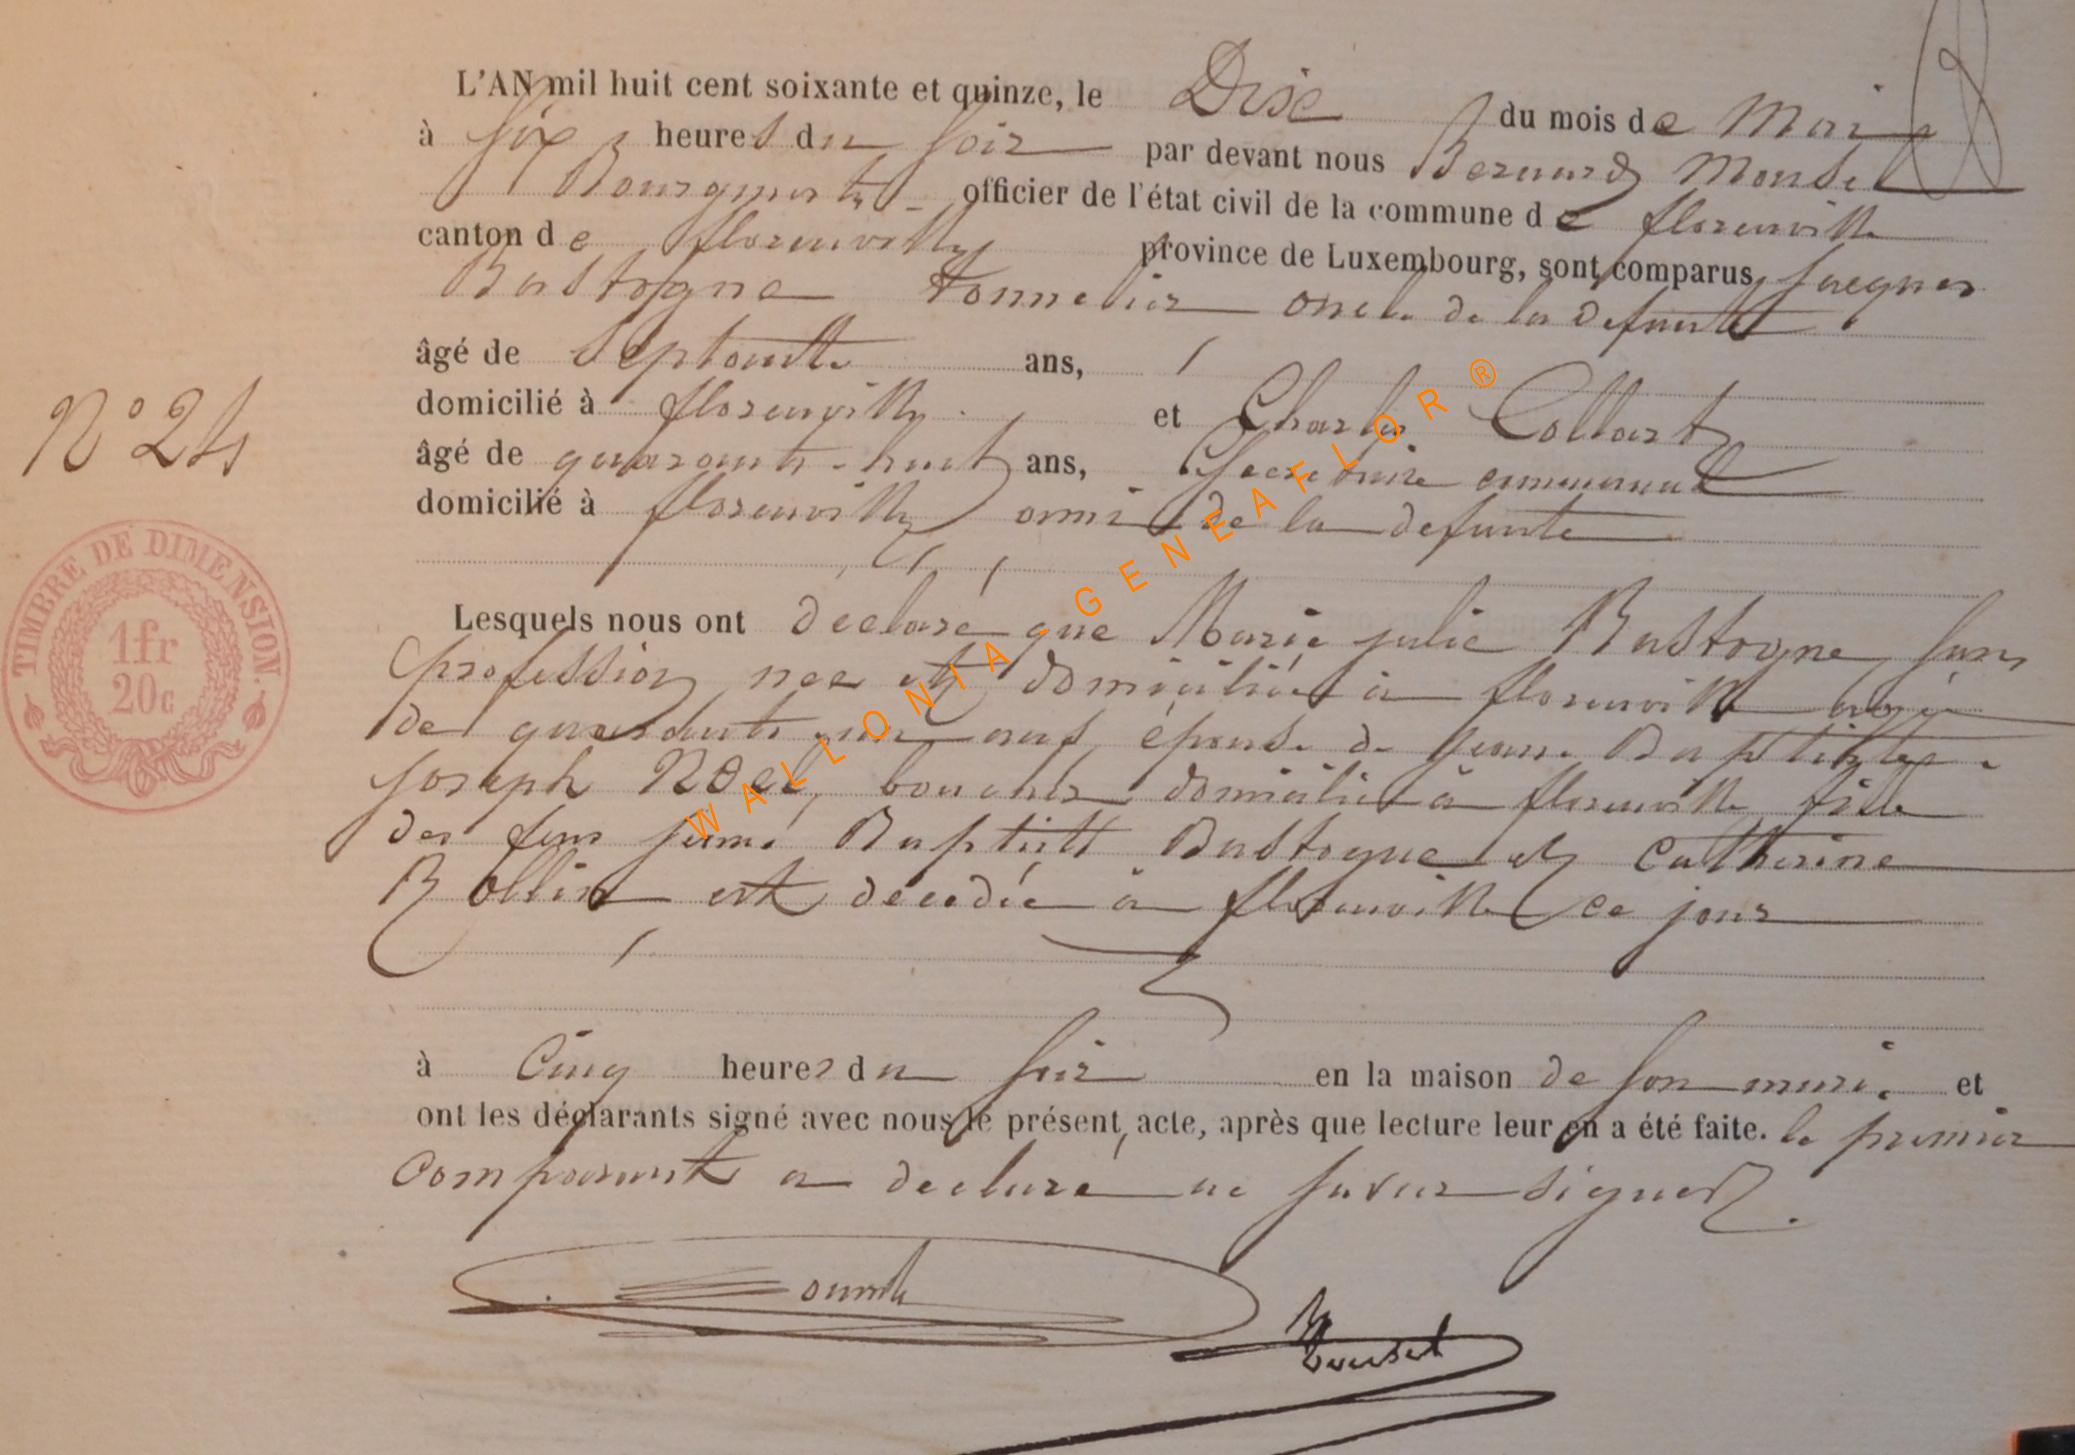 L'AN mil huit cent soixante et quinze, le Dix du mois de Mai
à six heures du soir par devant nous Bernard Monsel
Bourgmestre officier de l'état civil de la commune de florenville
canton de florenville province de Luxembourg, sont comparus Jacques
Bastogne tonnelier oncle de la defunte
âgé de septante ans,
domicilié à florenville et Charles Collart
âgé de quarante-huit ans, Secretaire communal
domicilié à florenville ami de la defunte
N° 24
TIMBRE DE DIMENSION.
1fr
20c
Lesquels nous ont declaré que Marie julie Bastogne sans
profession nee et domiciliée à florenville agée
de quarante neuf ans, épouse de Jean Baptiste
Joseph Noel, boucher domicilié à florenville fille
des feus Jean Baptiste Bastogne et Catherine
Rollin est decedée à florenville ce jour
à Cinq heures du soir en la maison de son mari et
ont les déclarants signé avec nous le présent acte, après que lecture leur en a été faite. le premier
comparant a declaré ne savoir signer.
Monsel
WALLONIA GENEAFLOR ®